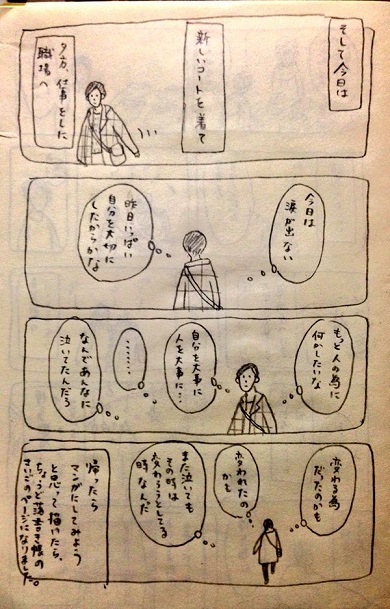 そして今日は
新しいコートを着て
夕方、仕事をした
職場へ
今日は
涙が出ない
昨日いっぱい
自分を大切に
したからかな
もっと人の為に
何かしたいな
自分を大事に
人を大事に…
……
なんであんなに
泣いてたんだろ
変わる為
だったのかも
変われたの
かも
また泣いても
その時は
変わろうとしてる
時なんだ
帰ったら
マンガにしてみよう
と思って描いたら、
ちょうど落書き帳の
さいごのページになりました。